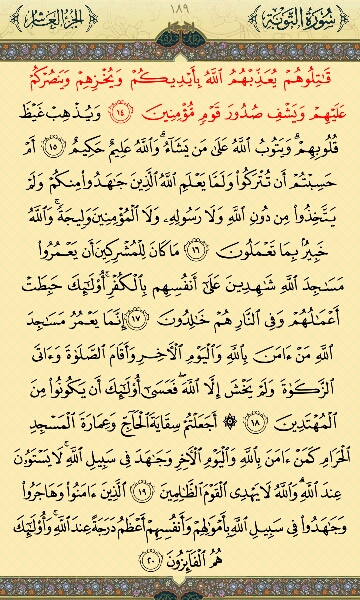 الجزء العاشر ١٨٩ سورة التوبة
قَٰتِلُوهُمْ يُعَذِّبْهُمُ ٱللَّهُ بِأَيْدِيكُمْ وَيُخْزِهِمْ وَيَنصُرْكُمْ
عَلَيْهِمْ وَيَشْفِ صُدُورَ قَوْمٍ مُّؤْمِنِينَ ١٤ وَيُذْهِبْ غَيْظَ
قُلُوبِهِمْ ۗ وَيَتُوبُ ٱللَّهُ عَلَىٰ مَن يَشَآءُ ۗ وَٱللَّهُ عَلِيمٌ حَكِيمٌ ١٥ أَمْ
حَسِبْتُمْ أَن تُتْرَكُوا۟ وَلَمَّا يَعْلَمِ ٱللَّهُ ٱلَّذِينَ جَٰهَدُوا۟ مِنكُمْ وَلَمْ
يَتَّخِذُوا۟ مِن دُونِ ٱللَّهِ وَلَا رَسُولِهِۦ وَلَا ٱلْمُؤْمِنِينَ وَلِيجَةً ۚ وَٱللَّهُ
خَبِيرٌۢ بِمَا تَعْمَلُونَ ١٦ مَا كَانَ لِلْمُشْرِكِينَ أَن يَعْمُرُوا۟
مَسَٰجِدَ ٱللَّهِ شَٰهِدِينَ عَلَىٰٓ أَنفُسِهِم بِٱلْكُفْرِ ۚ أُو۟لَٰٓئِكَ حَبِطَتْ
أَعْمَٰلُهُمْ وَفِى ٱلنَّارِ هُمْ خَٰلِدُونَ ١٧ إِنَّمَا يَعْمُرُ مَسَٰجِدَ
ٱللَّهِ مَنْ ءَامَنَ بِٱللَّهِ وَٱلْيَوْمِ ٱلْءَاخِرِ وَأَقَامَ ٱلصَّلَوٰةَ وَءَاتَى
ٱلزَّكَوٰةَ وَلَمْ يَخْشَ إِلَّا ٱللَّهَ ۖ فَعَسَىٰٓ أُو۟لَٰٓئِكَ أَن يَكُونُوا۟ مِنَ
ٱلْمُهْتَدِينَ ١٨ ۞ أَجَعَلْتُمْ سِقَايَةَ ٱلْحَآجِّ وَعِمَارَةَ ٱلْمَسْجِدِ
ٱلْحَرَامِ كَمَنْ ءَامَنَ بِٱللَّهِ وَٱلْيَوْمِ ٱلْءَاخِرِ وَجَٰهَدَ فِى سَبِيلِ ٱللَّهِ ۚ لَا يَسْتَوُۥنَ
عِندَ ٱللَّهِ ۗ وَٱللَّهُ لَا يَهْدِى ٱلْقَوْمَ ٱلظَّٰلِمِينَ ١٩ ٱلَّذِينَ ءَامَنُوا۟ وَهَاجَرُوا۟
وَجَٰهَدُوا۟ فِى سَبِيلِ ٱللَّهِ بِأَمْوَٰلِهِمْ وَأَنفُسِهِمْ أَعْظَمُ دَرَجَةً عِندَ ٱللَّهِ ۚ وَأُو۟لَٰٓئِكَ
هُمُ ٱلْفَآئِزُونَ ٢٠